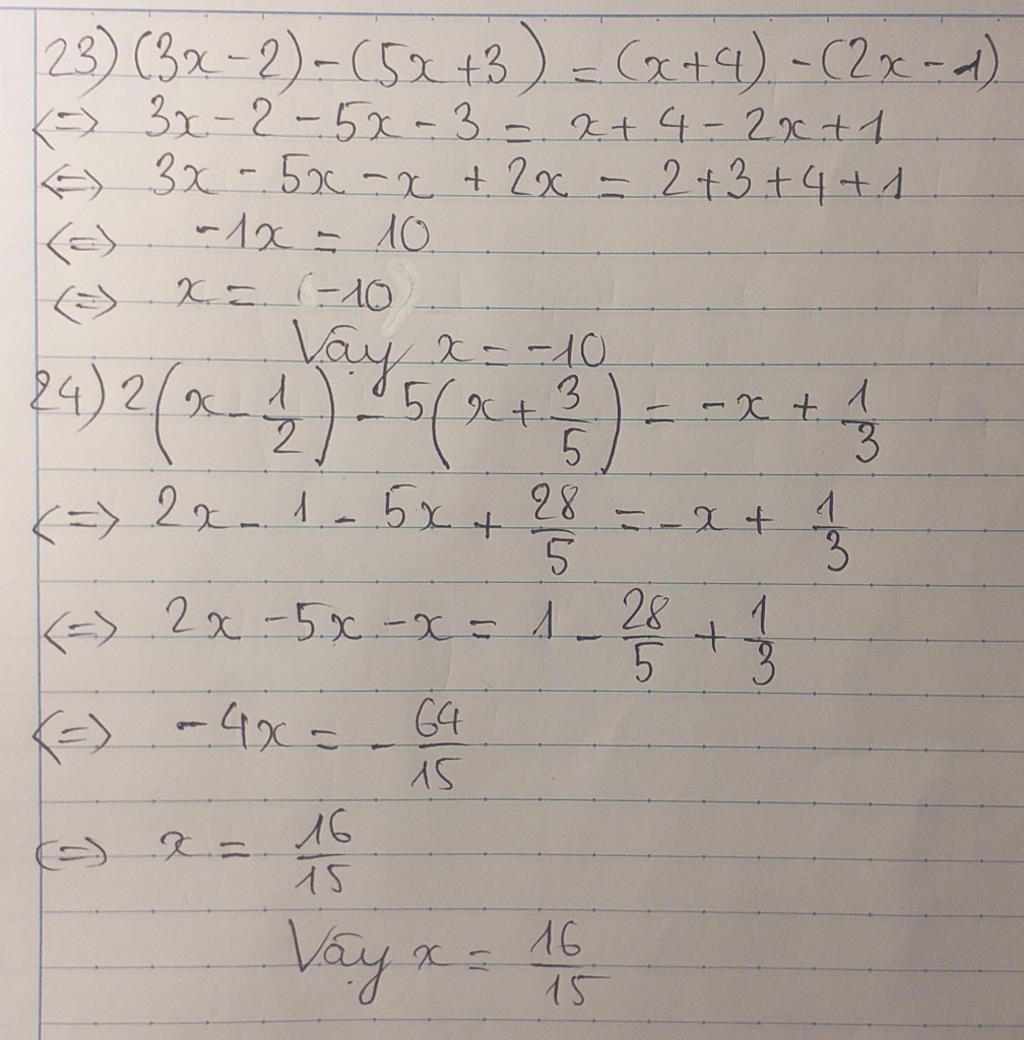 23) (3x - 2) - (5x + 3) = (x + 4) - (2x - 1)
<=> 3x - 2 - 5x - 3 = x + 4 - 2x + 1
<=> 3x - 5x - x + 2x = 2 + 3 + 4 + 1
<=> -1x = 10
<=> x = (-10)
Vậy x = -10
24) 2(x - 1/2) - 5(x + 3/5) = -x + 1/3
<=> 2x - 1 - 5x + 28/5 = -x + 1/3
<=> 2x - 5x - x = 1 - 28/5 + 1/3
<=> -4x = - 64/15
<=> x = 16/15
Vậy x = 16/15